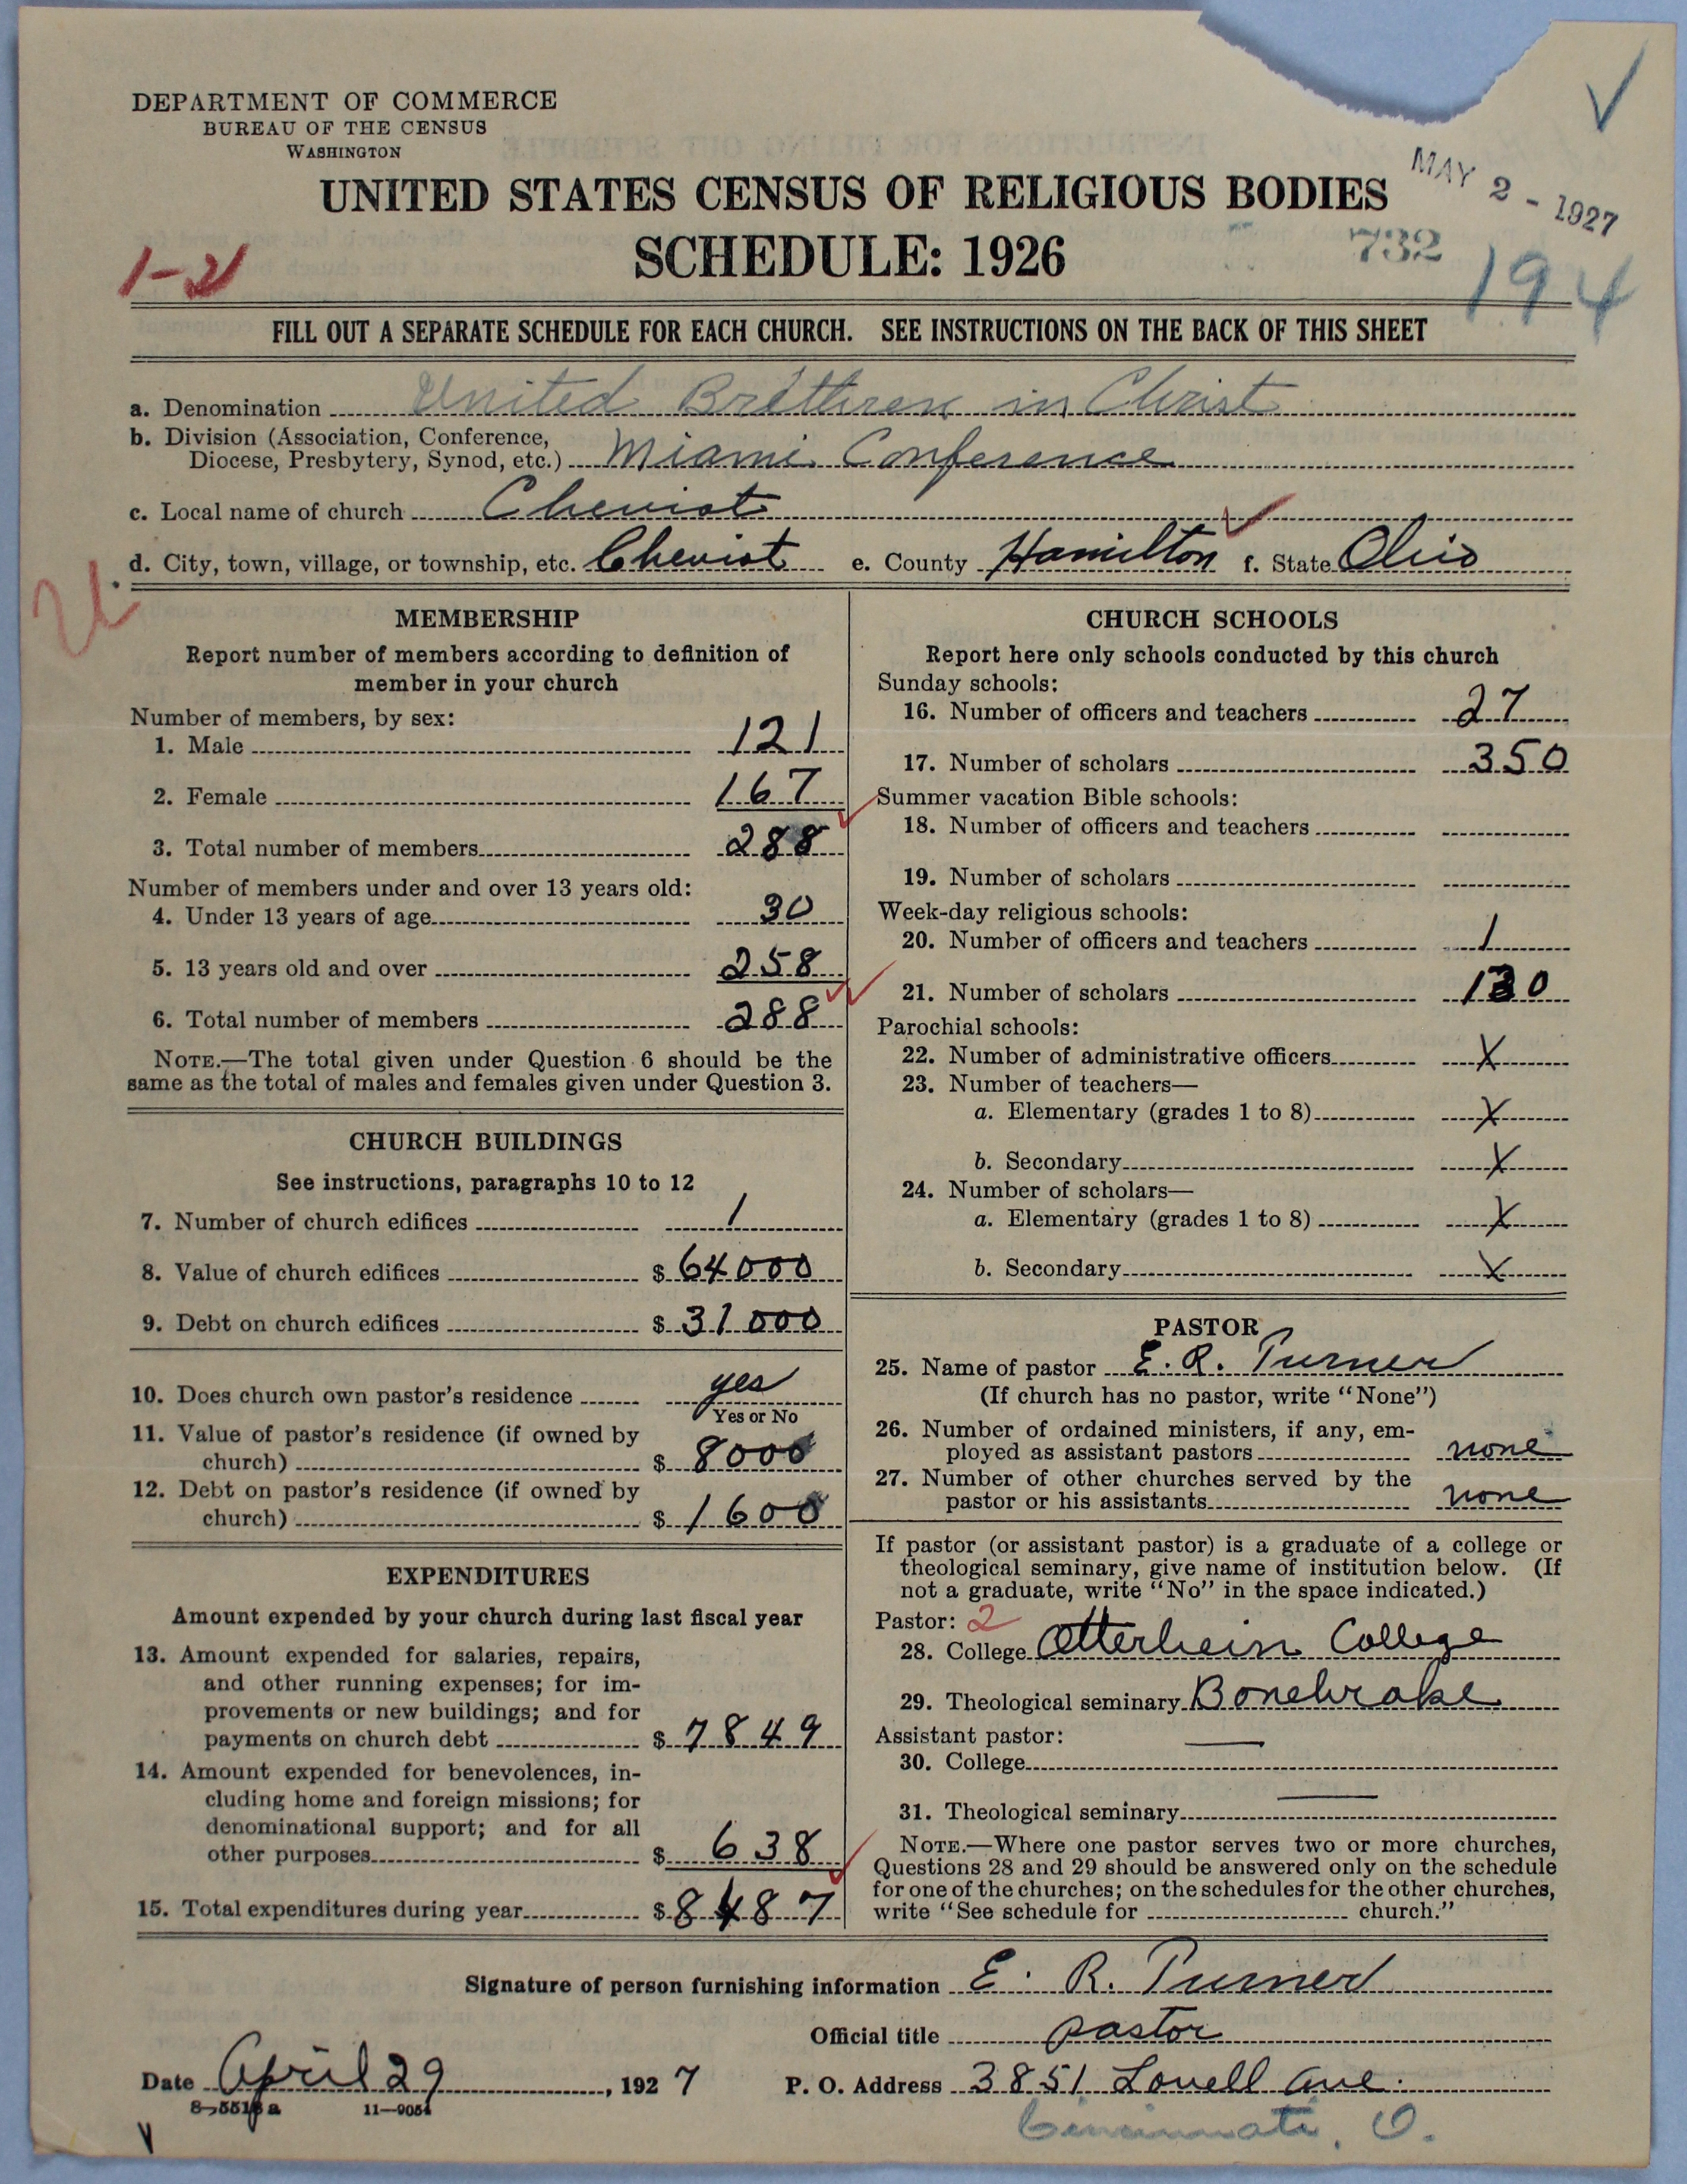 DEPARTMENT OF COMMERCE
BUREAU OF THE CENSUS
WASHINGTON
UNITED STATES CENSUS OF RELIGIOUS BODIES
SCHEDULE: 1926
MAY 2 - 1927
732
194
1-21
FILL OUT A SEPARATE SCHEDULE FOR EACH CHURCH. SEE INSTRUCTIONS ON THE BACK OF THIS SHEET
a. Denomination United Brethren in Christ
b. Division (Association, Conference,
Diocese, Presbytery, Synod, etc.) Miami Conference
c. Local name of church Cheviot
d. City, town, village, or township, etc. Cheviot e. County Hamilton f. State Ohio
MEMBERSHIP
Report number of members according to definition of
member in your church
Number of members, by sex:
1. Male 121
2. Female 167
3. Total number of members 288
Number of members under and over 13 years old:
4. Under 13 years of age 30
5. 13 years old and over 258
6. Total number of members 288
NOTE.—The total given under Question 6 should be the
same as the total of males and females given under Question 3.
CHURCH BUILDINGS
See instructions, paragraphs 10 to 12
7. Number of church edifices 1
8. Value of church edifices $ 64000
9. Debt on church edifices $ 31000
10. Does church own pastor's residence yes
Yes or No
11. Value of pastor's residence (if owned by
church) $ 8000
12. Debt on pastor's residence (if owned by
church) $ 1600
EXPENDITURES
Amount expended by your church during last fiscal year
13. Amount expended for salaries, repairs,
and other running expenses; for im-
provements or new buildings; and for
payments on church debt $ 7849
14. Amount expended for benevolences, in-
cluding home and foreign missions; for
denominational support; and for all
other purposes $ 638
15. Total expenditures during year $ 8487
CHURCH SCHOOLS
Report here only schools conducted by this church
Sunday schools:
16. Number of officers and teachers 27
17. Number of scholars 350
Summer vacation Bible schools:
18. Number of officers and teachers
19. Number of scholars
Week-day religious schools:
20. Number of officers and teachers 1
21. Number of scholars 130
Parochial schools:
22. Number of administrative officers X
23. Number of teachers—
a. Elementary (grades 1 to 8) X
b. Secondary X
24. Number of scholars—
a. Elementary (grades 1 to 8) X
b. Secondary X
PASTOR
25. Name of pastor E. R. Turner
(If church has no pastor, write "None")
26. Number of ordained ministers, if any, em-
ployed as assistant pastors none
27. Number of other churches served by the
pastor or his assistants none
If pastor (or assistant pastor) is a graduate of a college or
theological seminary, give name of institution below. (If
not a graduate, write "No" in the space indicated.)
Pastor: 2
28. College Otterbein College
29. Theological seminary Bonebrake
Assistant pastor:
30. College
31. Theological seminary
NOTE.—Where one pastor serves two or more churches,
Questions 28 and 29 should be answered only on the schedule
for one of the churches; on the schedules for the other churches,
write "See schedule for church."
Signature of person furnishing information E. R. Turner
Official title pastor
Date April 29, 1927 P. O. Address 3851 Lovell Ave.
Cincinnati, O.
8-5518a 11-9054